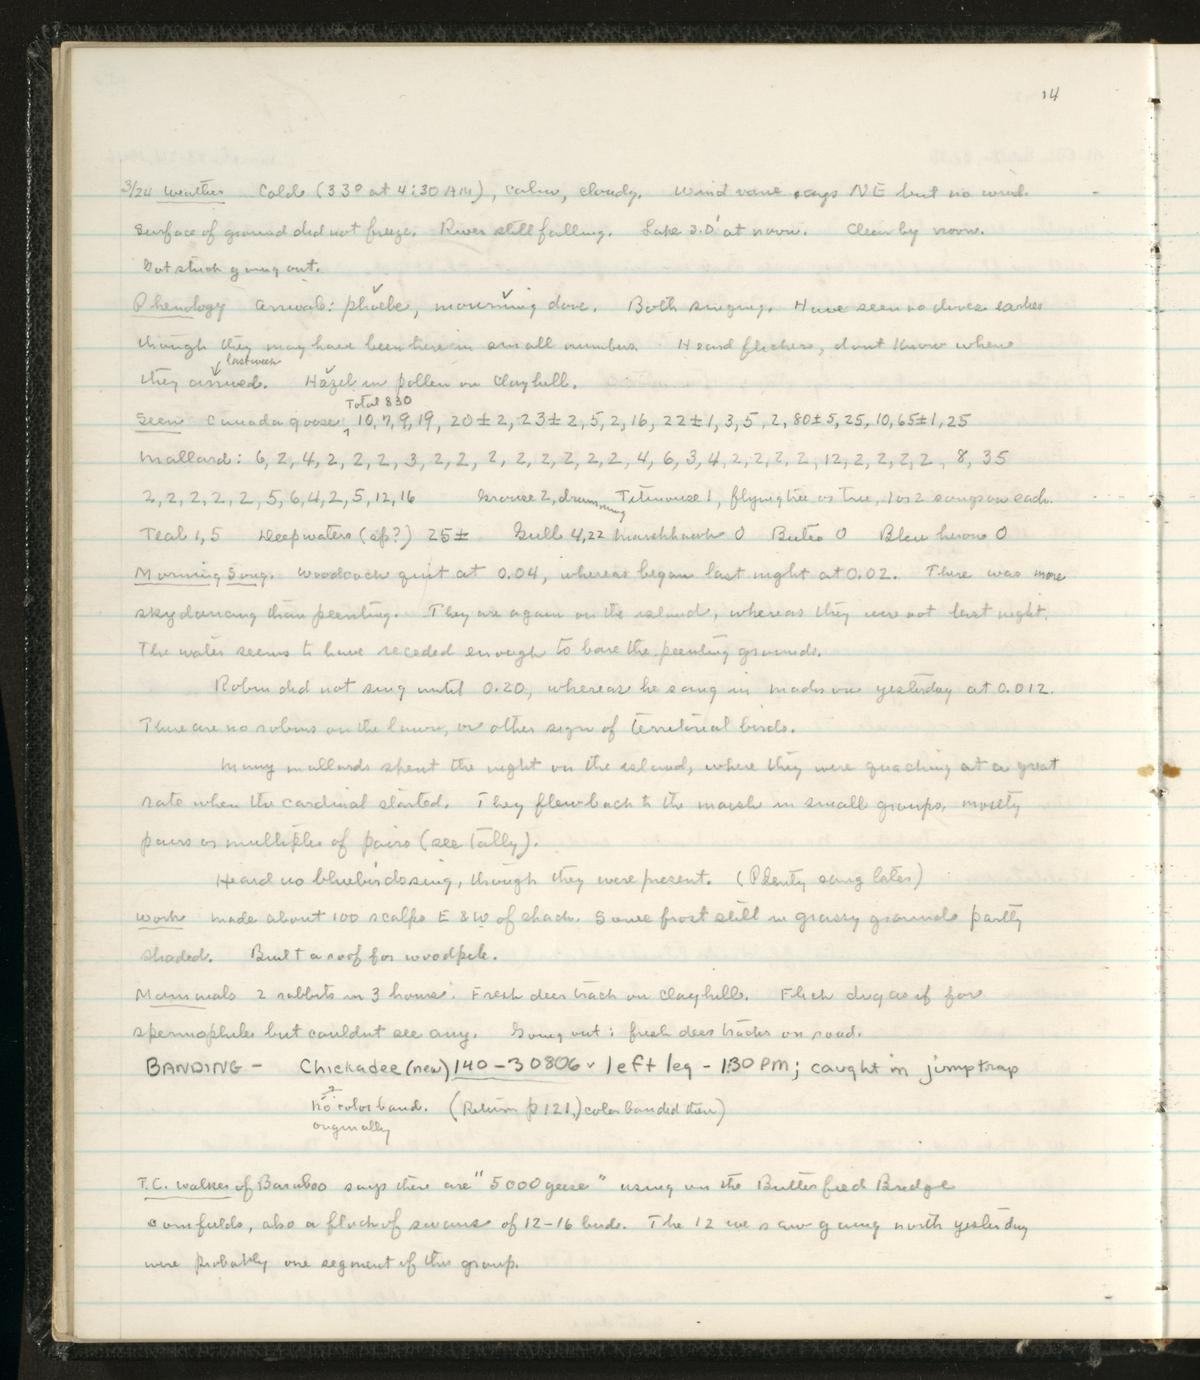 14
3/24 Weather Cold (33° at 4:30 AM), calm, cloudy. Wind vane says NE but no wind.
Surface of ground did not freeze. River still falling. Lake 3.0' at noon. Clear by noon.
Got stuck going out.
Phenology Arrivals: phoebe, mourning dove. Both singing. Have seen no doves earlier
though they may have been here in small numbers. Heard flickers, dont know when
last week
they arrived. Hazel in pollen on clay hill.
Total 830
Seen Canada goose: 10, 7, 9, 19, 20±2, 23±2, 5, 2, 16, 22±1, 3, 5, 2, 80±5, 25, 10, 65±1, 25
Mallard: 6, 2, 4, 2, 2, 2, 3, 2, 2, 2, 2, 2, 2, 2, 2, 4, 6, 3, 4, 2, 2, 2, 2, 12, 2, 2, 2, 2, 8, 35
2, 2, 2, 2, 2, 5, 6, 4, 2, 5, 12, 16 Grouse 2, drumming Titmouse 1, flying tree to tree, 1 or 2 songs on each.
Teal 1, 5 Deepwaters (sp?) 25± Gull 4, 22 Marshhawk 0 Buteo 0 Blue heron 0
Morning Song. Woodcock quit at 0.04, whereas began last night at 0.02. There was more
skydancing than peenting. They are again on the island, whereas they were not last night.
The water seems to have receded enough to bare the peenting grounds.
Robin did not sing until 0.20, whereas he sang in Madison yesterday at 0.012.
There are no robins on the lawn, or other sign of territorial birds.
Many mallards spent the night on the island, where they were quacking at a great
rate when the cardinal started. They flew back to the marsh in small groups, mostly
pairs or multiples of pairs (see tally).
Heard no bluebirds sing, though they were present. (Plenty sang later)
Work made about 100 scalps E & W of shack. Some frost still in grassy grounds partly
shaded. Built a roof for woodpile.
Mammals 2 rabbits in 3 hours. Fresh deer track on clay hill. Flick dug as if for
spermophile but couldnt see any. Going out: fresh deer tracks on road.
BANDING - Chickadee (new) 140-30806 left leg - 1:30 PM; caught in jump trap
?
no color band. (Return p 121,) color banded then)
originally
T.C. Walker of Baraboo says there are "5000 geese" using on the Butterfield Bridge
cornfields, also a flock of swans of 12-16 birds. The 12 we saw going north yesterday
were probably one segment of this group.